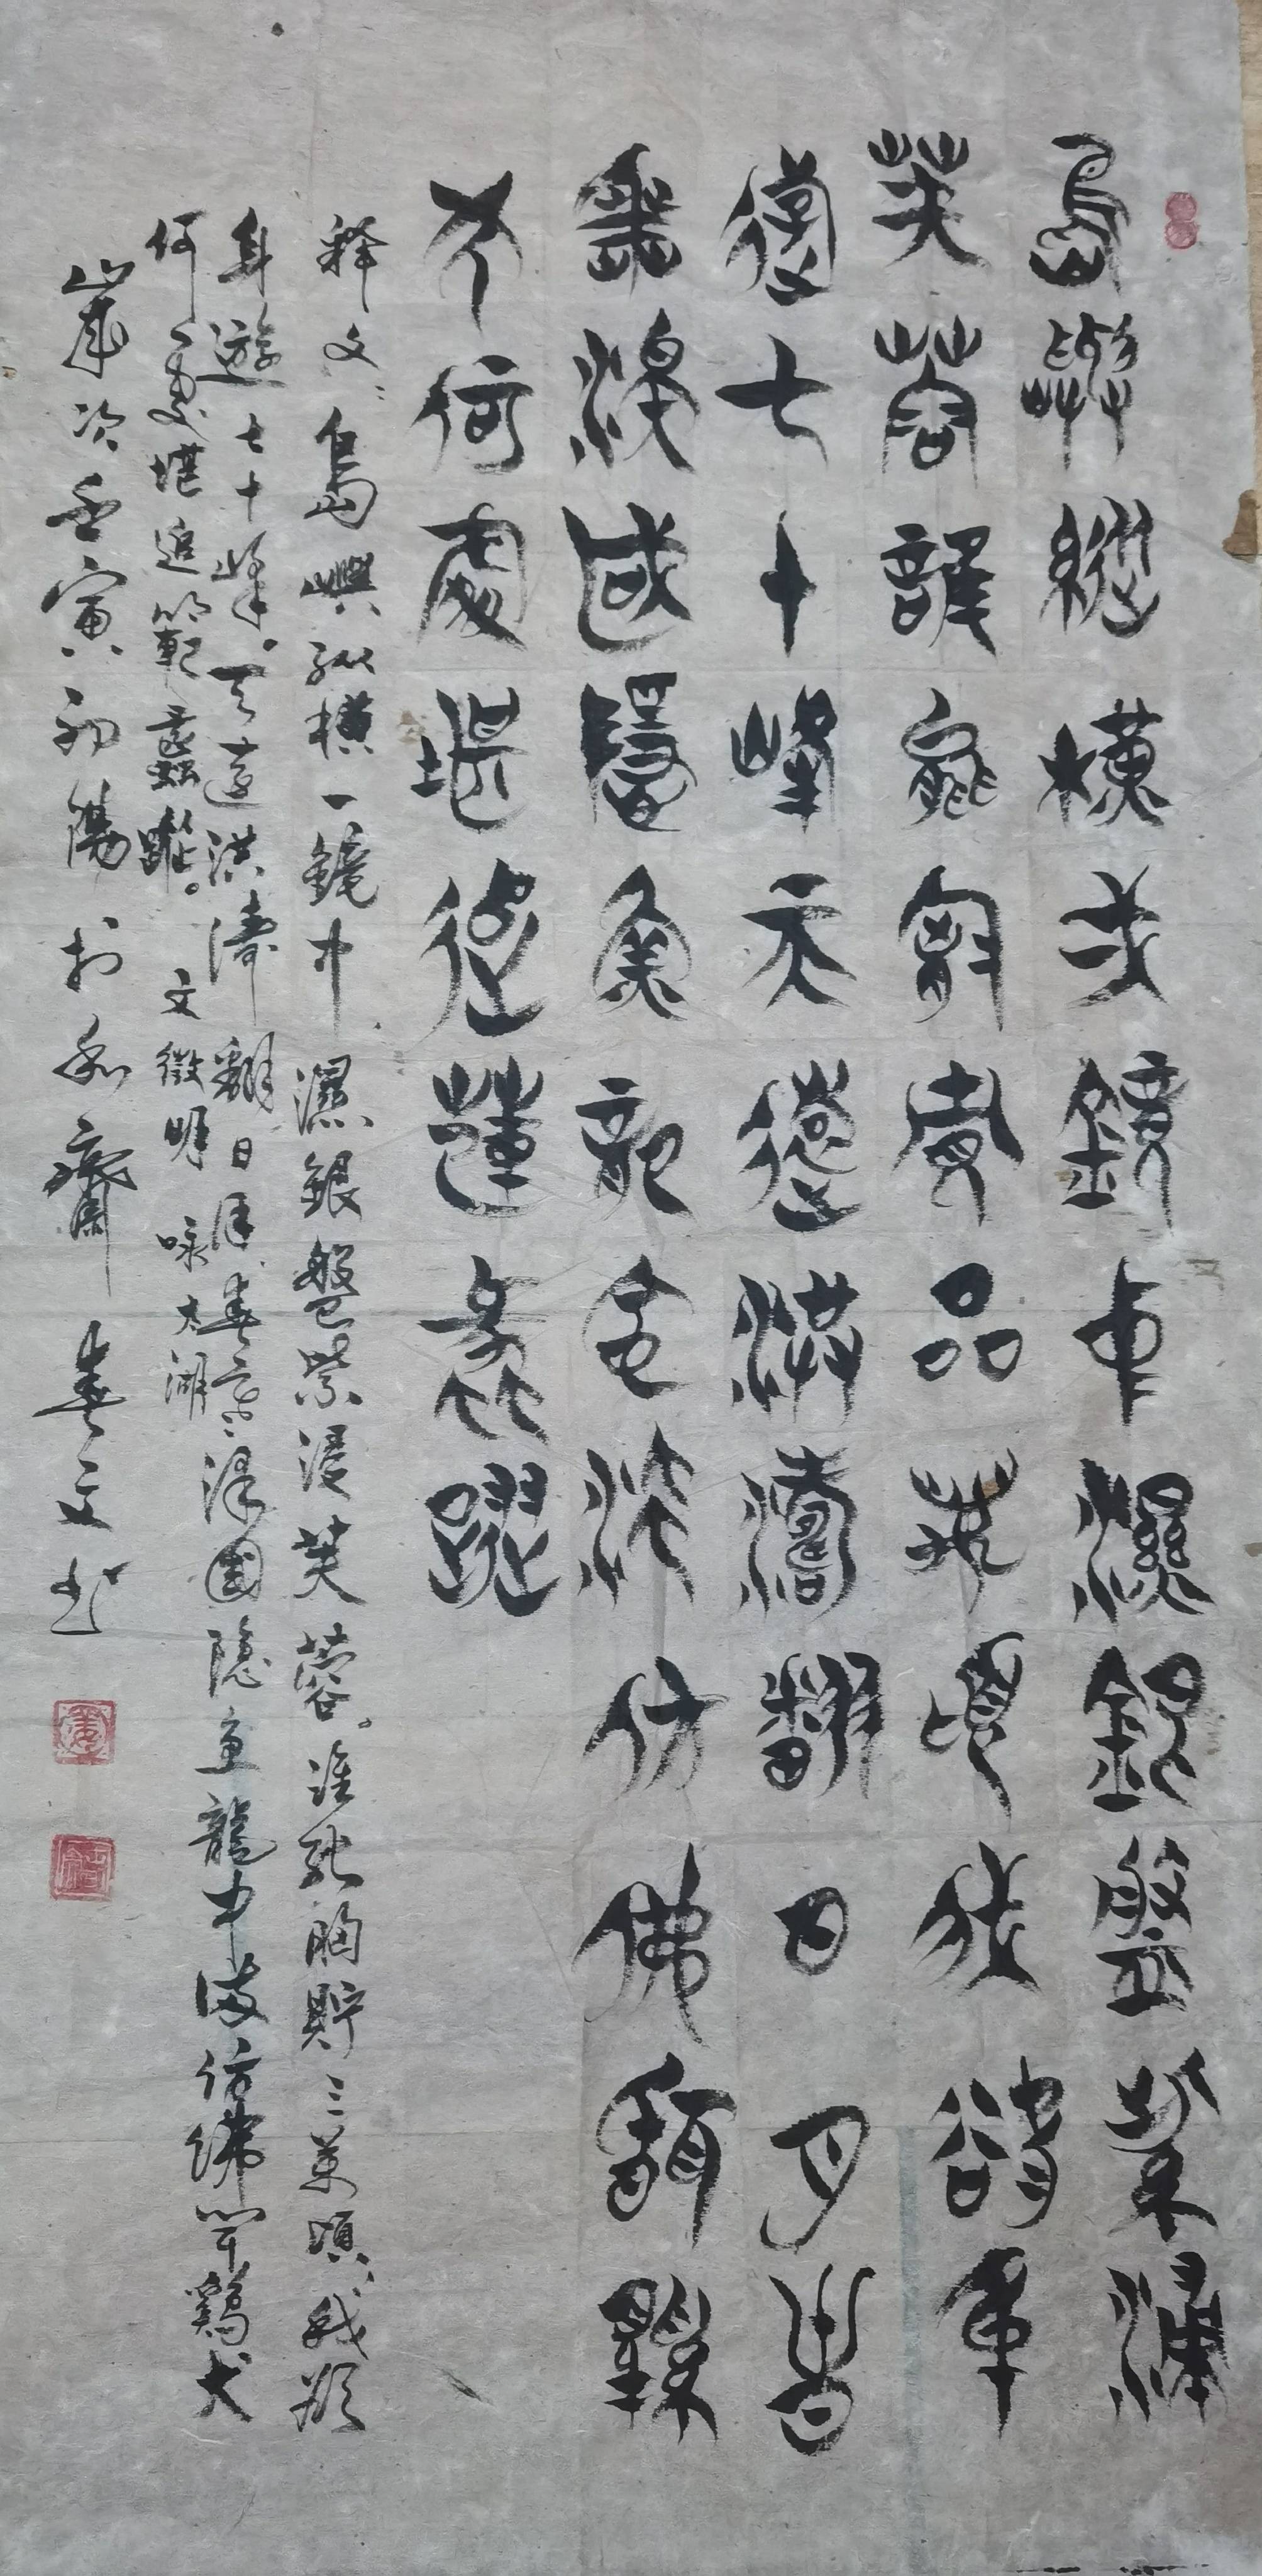 島嶼縱橫弌鏡中濕銀盤紫浸
芙蓉誰能胸貯品萬頃我欲身
遊七十峰天遠洪濤翻日月春
寒澤國隱魚龍中流仿佛聞雞
犬何處堪追蓮蠡蹤
释文：島嶼纵横一鏡中濕銀盤紫浸芙蓉。谁能胸貯三萬頃、我欲
身遊七十峰。天遠洪濤翻日月、春寒澤國隐魚龍中流仿佛闻鷄犬
何處堪追範蠡蹤。文徵明咏太湖
歲次壬寅初陽於和齋春文书